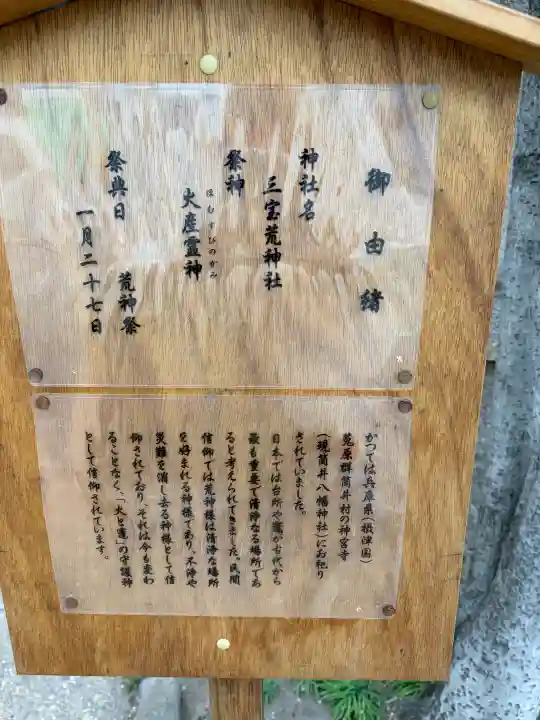 御由緒
神社名
三宝荒神社
祭神
火産霊神
ほむすびのかみ
祭典日
荒神祭
一月二十七日
かつては兵庫県(摂津国)
菟原群筒井村の神宮寺
(現筒井八幡神社)にお祀り
されていました。
日本では台所や竈が古代から
最も重要で清浄なる場所であ
ると考えられてきました。民間
信仰では荒神様は清浄な場所
を好まれる神様であり、不浄や
災難を消し去る神様として信
仰されており、それは今も変わ
ることなく、「火と竈」の守護神
として信仰されています。